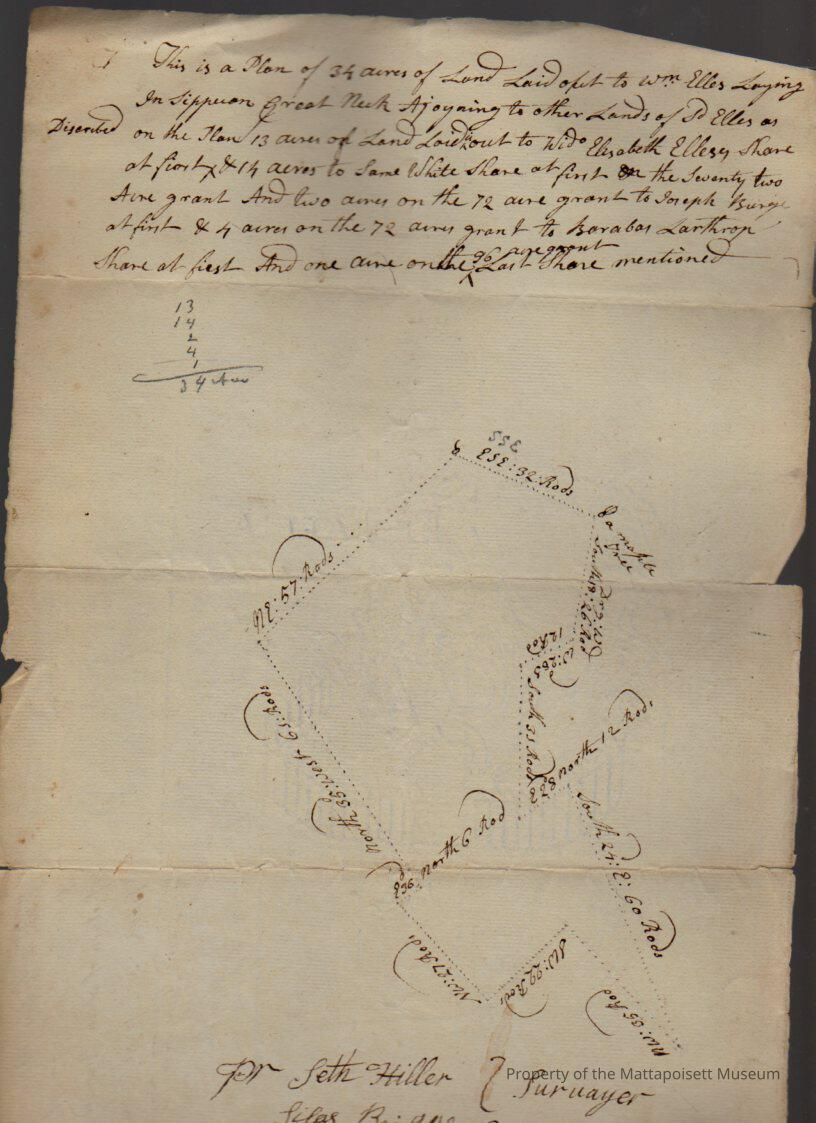 This is a Plan of 34 acres of Land Laid out to Wm Elles Laying
In Sippecan Great Neck Ajoyning to other Lands of Sd Elles as
Discribed on the Plan 13 acres of Land Laid out to Wido Elisabeth Elleses Share
at first & 14 acres to Same White Share at first on the Seventy two
Acre grant And two acres on the 72 acre grant to Joseph Burge
at first & 4 acres on the 72 acres grant to Barabas Larthrop
Share at first And one acre on the 96 acre grant Last Share mentioned
13
14
2
4
1
34
SSE
ESE: 32: Rods
a maple Tree
NE: 57: Rods
South 26 Rod
12 Rod
South 35 Rods
North 35: West 65: Rods
North 12 Rods
E 36 North 6 Rod
South 24: E: 60 Rods
NW: 27 Rods
SW: 22 Rods
NW: 35 Rod
Pr Seth Hiller } Survayer
Silas
Property of the Mattapoisett Museum